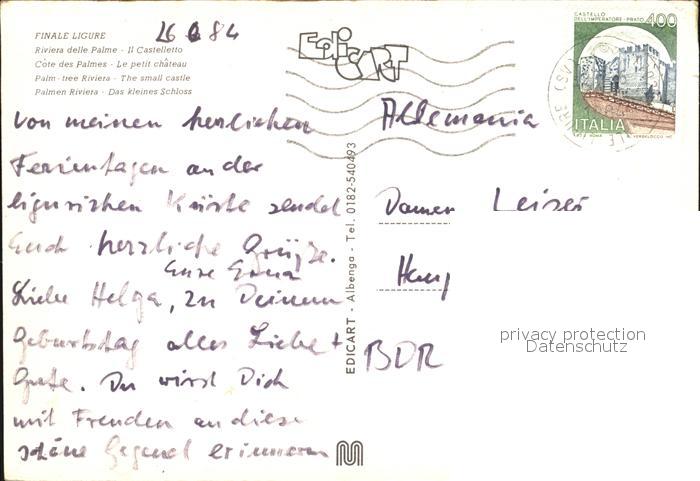 26 6 84
FINALE LIGURE
Riviera delle Palme - Il Castelletto
Côte des Palmes - Le petit château
Palm-tree Riviera - The small castle
Palmen Riviera - Das kleines Schloss
Edicart
CASTELLO
DELL'IMPERATORE-PRATO 400
ITALIA
Von meinen herrlichen
Ferientagen an der
ligurischen Küste sendet
Euch herzliche Grüße.
Eure Erna
Liebe Helga, zu Deinem
Geburtstag alles Liebe +
Gute. Du wirst Dich
mit Freuden an diese
schöne Gegend erinnern
EDICART - Albenga - Tel. 0182-540493
Allemania
Damen
BDR
privacy protection
Datenschutz